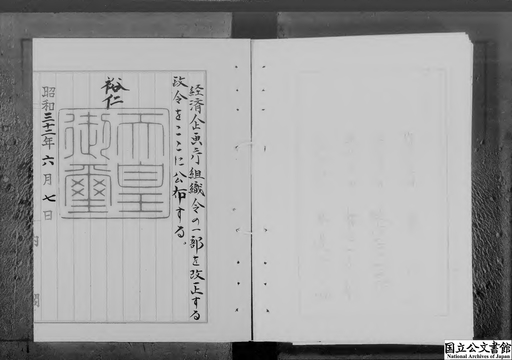 経済企画庁組織令の一部を改正する
政令をここに公布する。
裕仁
天皇
御璽
昭和三十二年六月七日
内閣
国立公文書館
National Archives of Japan